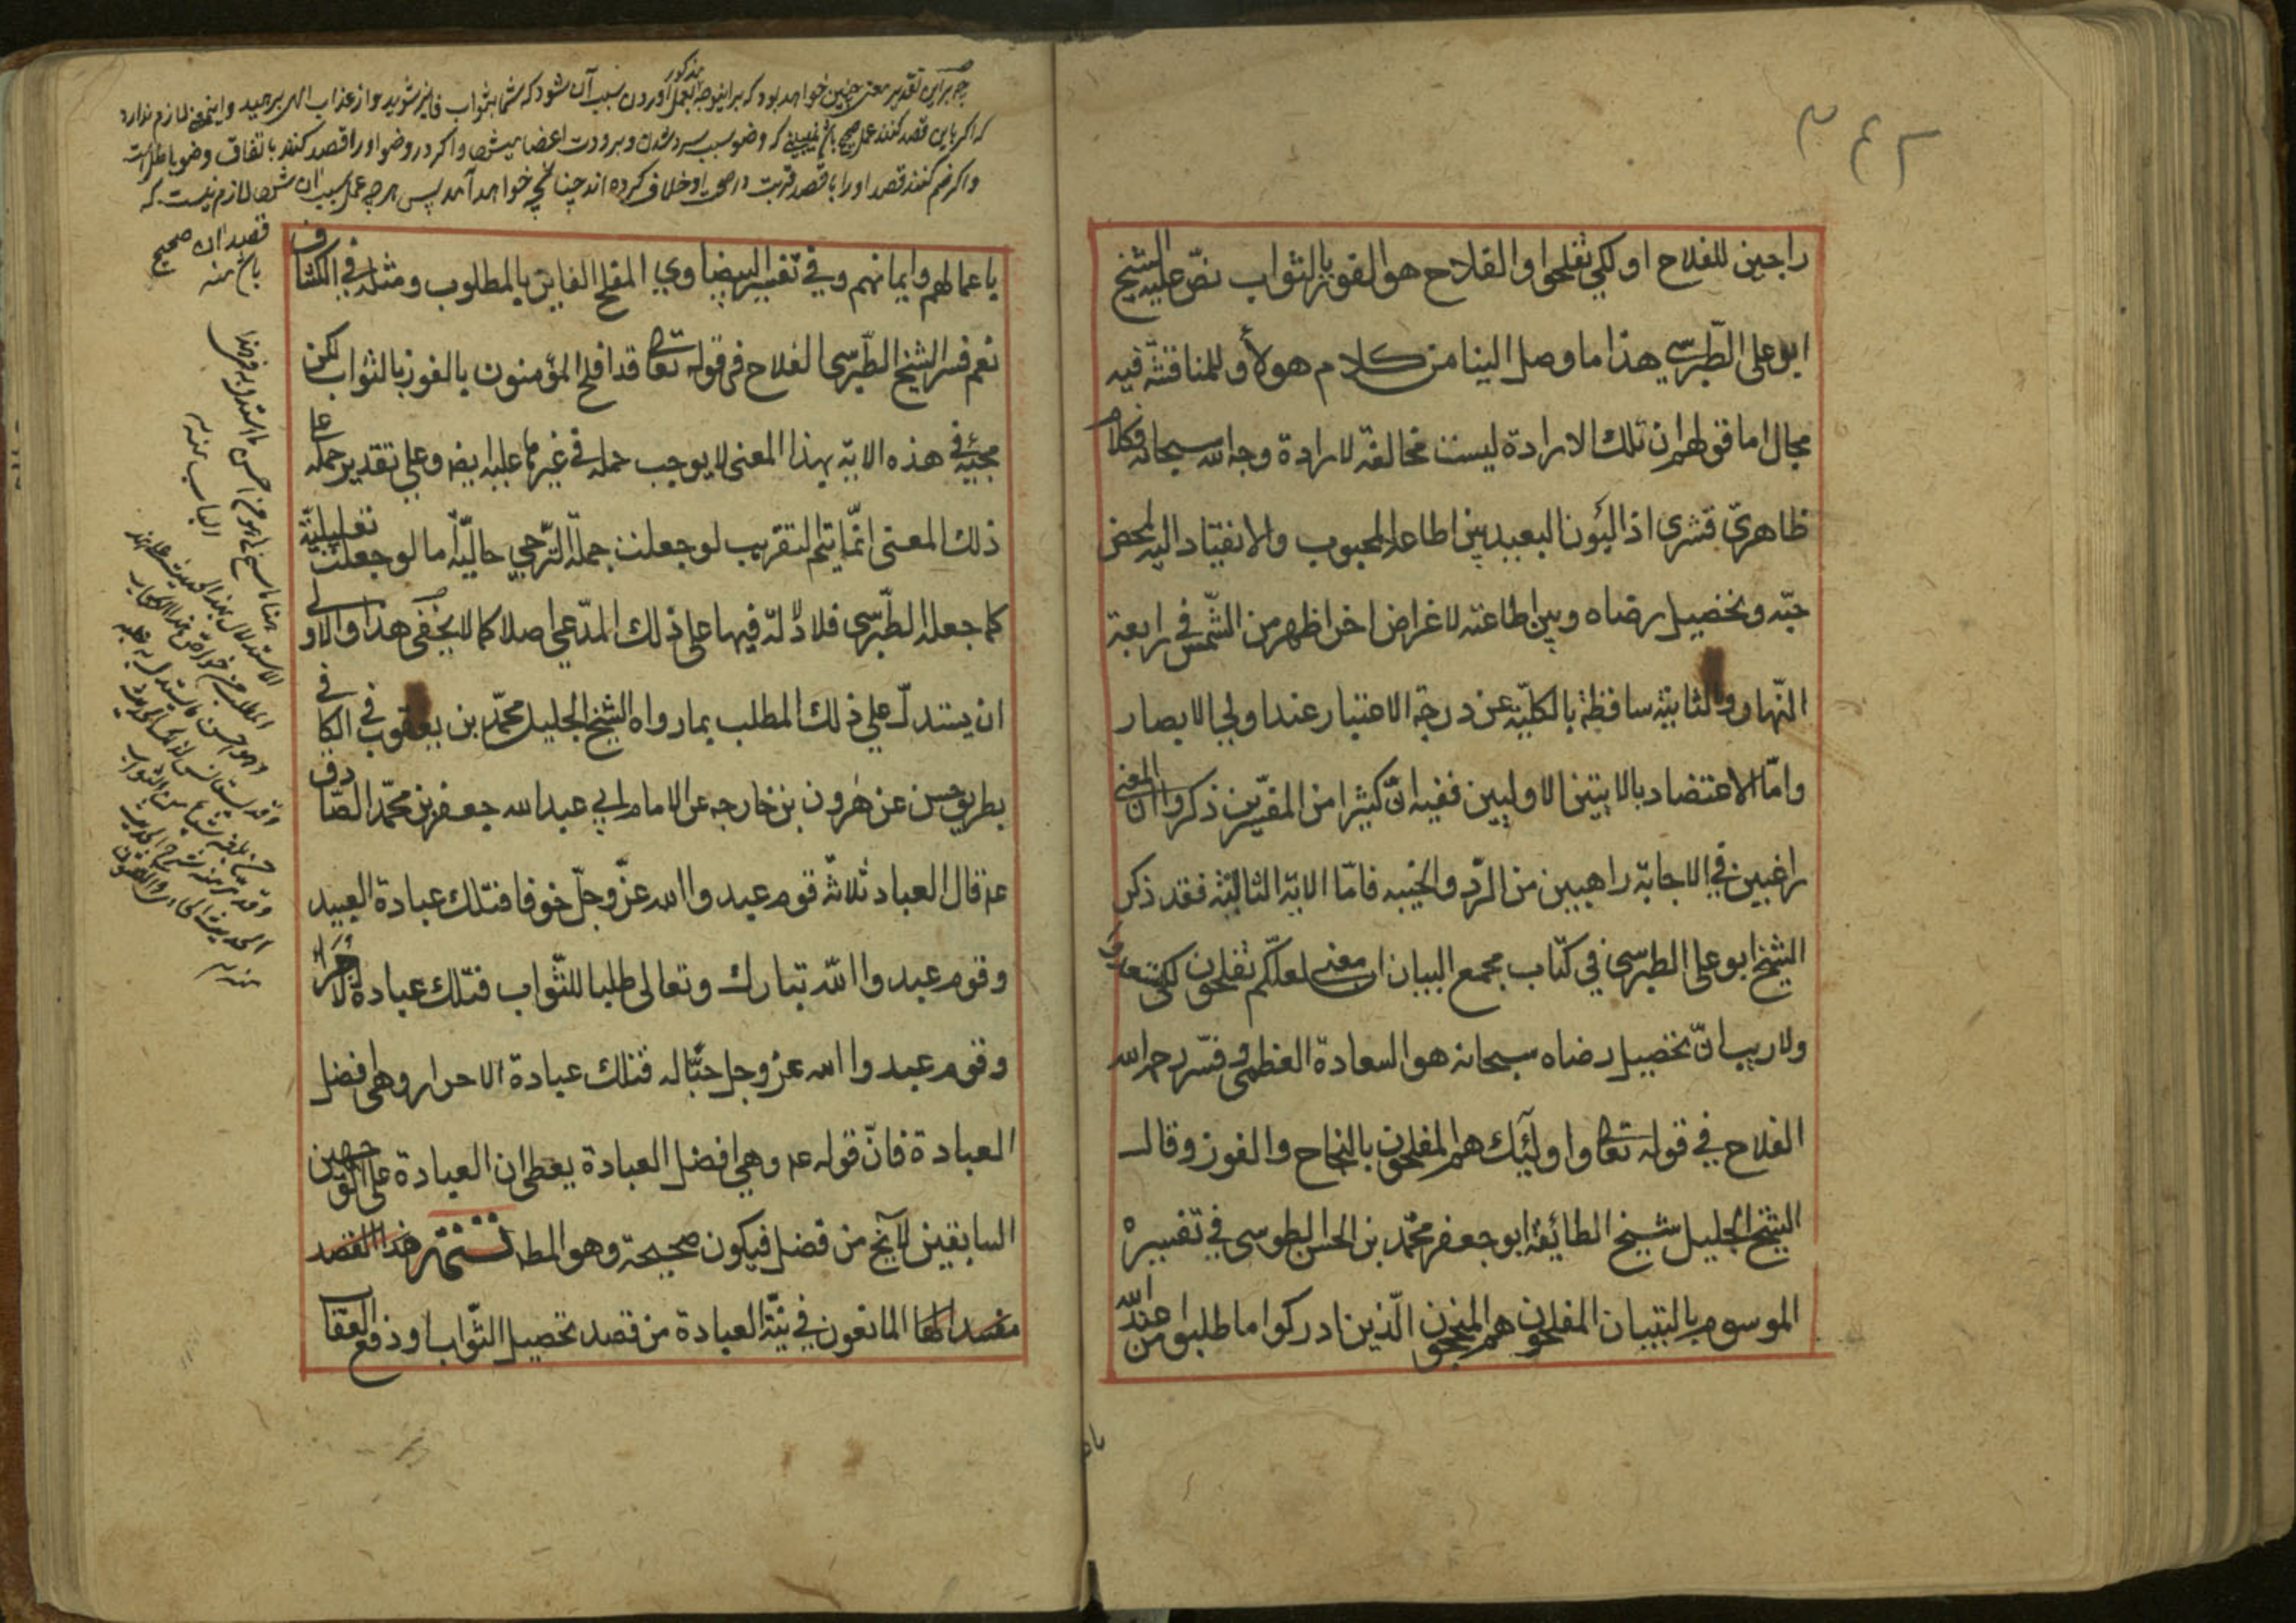 راجين للفلاح او لكي تفلحوا والفلاح هو الفوز بالثواب نصّ عليه الشيخ
ابو علي الطبرسي هذا ما وصل الينا من كلام هولاء وللمناقشة فيه
مجال اما قولهم ان تلك الارادة ليست مخالفة لارادة وجه الله سبحانه فكلام
ظاهريّ قشري اذ البون البعيد بين اطاعة المحبوب والانقياد اليه لمحض
حبّه وتحصيل رضاه وبين اطاعته لاغراض اخر اظهر من الشّمس في رابعة
النّهار والثانية ساقطة بالكليّة عن درجة الاعتبار عند اولي الابصار
وامّا الاعتضاد بالايتين الاوليين ففيه انّ كثيرا من المفسّرين ذكروا ان المعنى
راغبين في الاجابة راهبين من الردّ والخيبه فامّا الاية الثالثة فقد ذكر
الشيخ ابو علي الطبرسي في كتاب مجمع البيان ان معنى لعلّكم تفلحون لكي تسعدوا
ولا ريب انّ تحصيل رضاه سبحانه هو السعادة العظمى وفسّر رحمه الله
الفلاح في قوله تعا واولئك هم المفلحون بالنجاح والفوز وقال
الشيخ الجليل شيخ الطائفة ابو جعفر محمّد بن الحسن الطوسي في تفسيره
الموسوم بالتبيان المفلحون هم المنجحون الّذين ادركوا ما طلبوا من عند الله
چه براین تقدیر معنی چنین خواهد بود که براینوجه العمل مذكور آوردن سبب آن شود که شما بثواب فایز شوید و از عذاب الهی برهید و اینمعنی لازم ندارد
که اگر باین قصد کنند عمل صحیح باشد نمیبینی که وضو سبب سرد شدن و برودت اعضا میشود و اگر در وضو او را قصد کنند باتفاق وضو باطل است
و اگر ضم کنند قصد او را با قصد قربت در صحت او خلاف کرده اند چنانچه خواهد آمد پس هر چه عمل سبب ان شود لازم نیست که
قصد ان صحیح
باشد منه
باعمالهم وايمانهم وفي تفسير البيضاوي المفلح الفايز بالمطلوب ومثله في الكشاف
نعم فسر الشيخ الطبّرسي الفلاح في قوله تعا قد افلح المؤمنون بالفوز بالثواب لكن
مجيئه في هذه الاية بهذا المعنى لا يوجب حمله في غيرها عليه ايضا وعلى تقدير حمله على
ذلك المعنى انّما يتم التقريب لو جعلت جملة الترّجي حاليّة اما لو جعلت تعليليّة
كما جعله الطبّرسي فلا دلالة فيها على ذلك المدّعي اصلا كما لا يخفى هذا والاولى
ان يستدلّ على ذلك المطلب بما رواه الشيخ الجليل محمّد بن يعقوب في الكافي
بطريق حسن عن هرون بن خارجه عن الامام ابي عبد الله جعفر بن محمّد الصّادق
عم قال العباد ثلاثة قوم عبدوا الله عزّ وجلّ خوفا فتلك عبادة العبيد
وقوم عبدوا الله تبارك وتعالى طلبا للثّواب فتلك عبادة الاجراء
وقوم عبدوا الله عز وجل حبّا له فتلك عبادة الاحرار وهي افضل
العبادة فانّ قوله عم وهي افضل العبادة يعطي ان العبادة على الوجهين
السابقين لا يخ من فضل فيكون صحيحة وهو المط تتمّة هذا القصد
مفسد لها المانعون في نيّة العبادة من قصد تحصيل الثّواب او دفع العقا